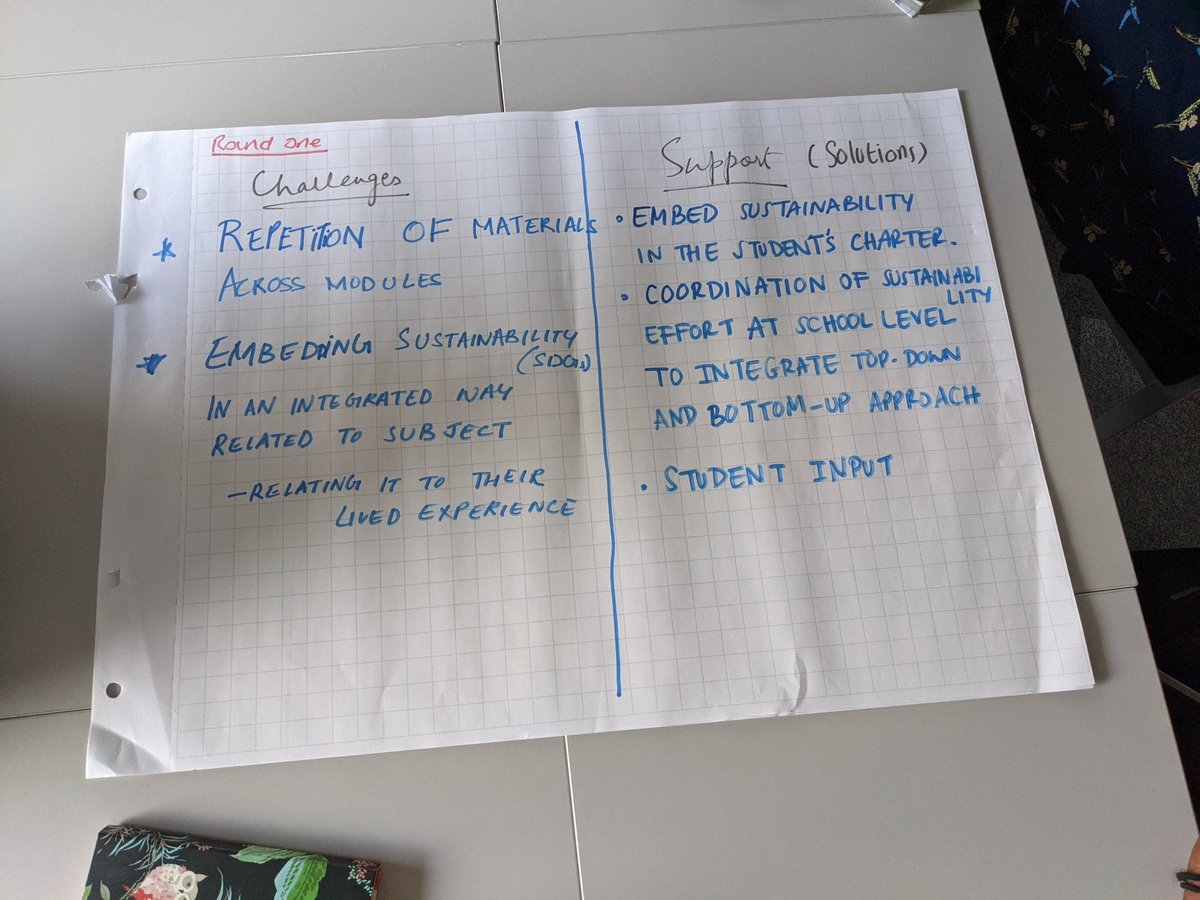 Round one
Challenges
* REPETITION OF MATERIALS
ACROSS MODULES
* EMBEDDING SUSTAINABILITY
(SDGs)
IN AN INTEGRATED WAY
RELATED TO SUBJECT
- RELATING IT TO THEIR
LIVED EXPERIENCE
Support (Solutions)
• EMBED SUSTAINABILITY
IN THE STUDENT'S CHARTER.
• COORDINATION OF SUSTAINABI
LITY
EFFORT AT SCHOOL LEVEL
TO INTEGRATE TOP-DOWN
AND BOTTOM-UP APPROACH
• STUDENT INPUT